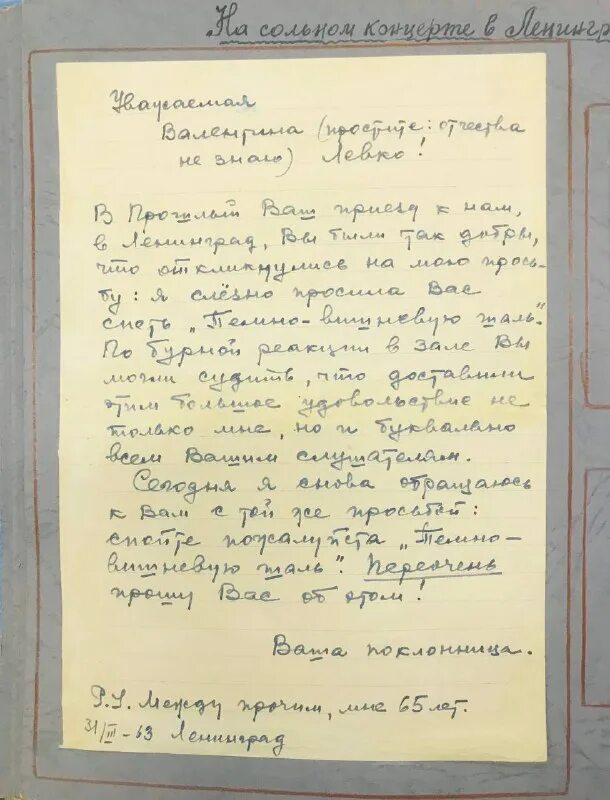 На сольном концерте в Ленингр
Уважаемая
Валентина (простите: отчества
не знаю) Левко!
В Прошлый Ваш приезд к нам,
в Ленинград, Вы были так добры,
что откликнулись на мою прось-
бу: я слёзно просила Вас
спеть „Темно-вишневую шаль".
По бурной реакции в зале Вы
могли судить, что доставили
этим большое удовольствие не
только мне, но и буквально
всем Вашим слушателям.
Сегодня я снова обращаюсь
к Вам с той же просьбой:
спойте пожалуйста „Темно-
вишневую шаль". Переочень
прошу Вас об этом!
Ваша поклонница.
P.S. Между прочим, мне 65 лет.
31/III-63 Ленинград